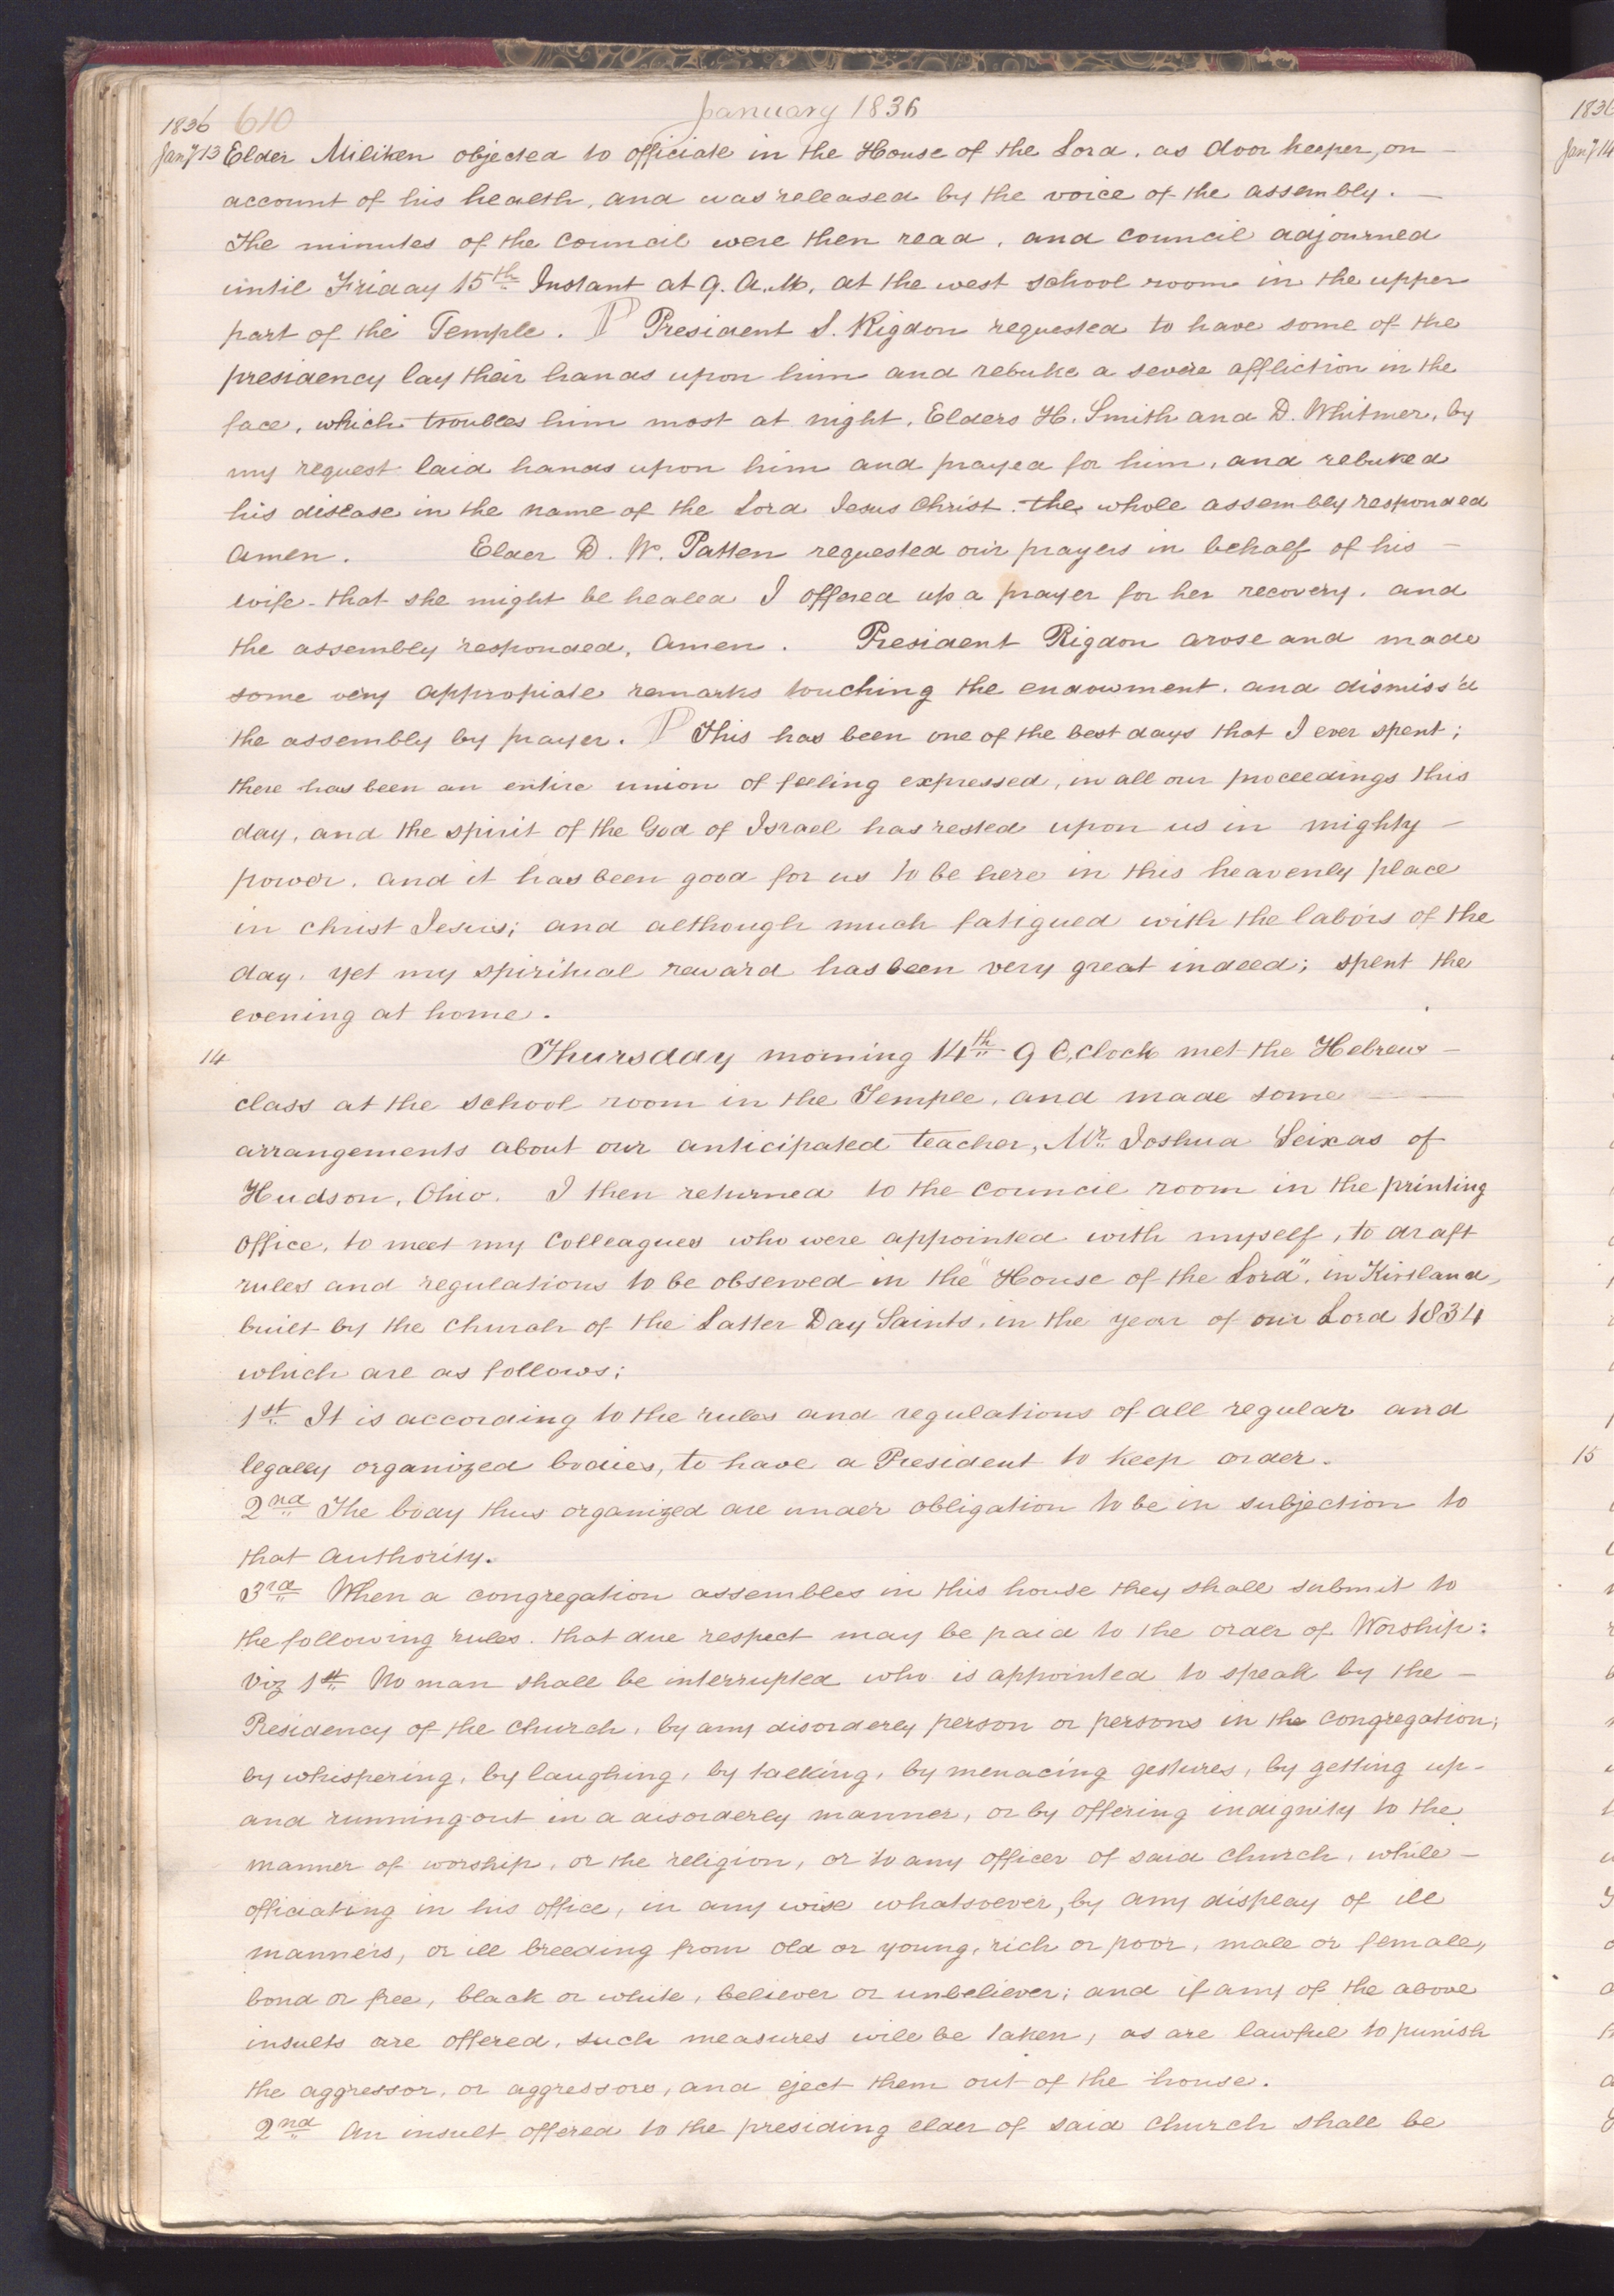 January 1836
1836 610
Jany 13 Elder Miliken objected to officiate in the House of the Lord, as door keeper, on —
account of his health, and was released by the voice of the assembly. —
The minutes of the council were then read, and council adjourned
until Friday 15th Instant at 9. A.M. at the west school room in the upper
part of the Temple. P President S. Rigdon requested to have some of the
presidency lay their hands upon him and rebuke a severe affliction in the
face, which troubles him most at night. Elders H. Smith and D. Whitmer, by
my request laid hands upon him and prayed for him, and rebuked
his disease in the name of the Lord Jesus Christ. the whole assembly responded
amen. Elder D. W. Patten requested our prayers in behalf of his —
wife that she might be healed I offered up a prayer for her recovery, and
the assembly responded, Amen. President Rigdon arose and made
some very appropiate remarks touching the endowment. and dismiss'd
the assembly by prayer. P This has been one of the best days that I ever spent;
there has been an entire union of feeling expressed, in all our proceedings this
day, and the spirit of the God of Israel has rested upon us in mighty —
power, and it has been good for us to be here in this heavenly place
in christ Jesus; and although much fatigued with the labors of the
day, yet my spiritual reward has been very great indeed; spent the
evening at home.
14 Thursday morning 14th 9 O,clock met the Hebrew —
class at the school room in the Temple, and made some —
arrangements about our anticipated teacher, Mr. Joshua Seixas of
Hudson, Ohio. I then returned to the council room in the printing
office, to meet my Colleagues who were appointed with myself, to draft
rules and regulations to be observed in the "House of the Lord", in Kirtland,
built by the church of the Latter Day Saints, in the year of our Lord 1834
which are as follows;
1st It is according to the rules and regulations of all regular and
legally organized bodies, to have a President to keep order.
2nd The body thus organized are under obligation to be in subjection to
that authority.
3rd When a congregation assembles in this house they shall submit to
the following rules. that due respect may be paid to the order of Worship:
viz 1st No man shall be interrupted who is appointed to speak by the —
Presidency of the church, by any disorderly person or persons in the congregation;
by whispering, by laughing, by talking, by menacing gestures, by getting up-
and running out in a disorderly manner, or by offering indignity to the
manner of worship, or the religion, or to any officer of said church, while —
officiating in his office, in any wise whatsoever, by any display of ill
manners, or ill breeding from old or young, rich or poor, male or female,
bond or free, black or white, believer or unbeliever; and if any of the above
insults are offered, such measures will be taken, as are lawful to punish
the aggressor, or aggressors, and eject them out of the house.
2nd An insult offered to the presiding elder of said church shall be
1836
Jany 14
15